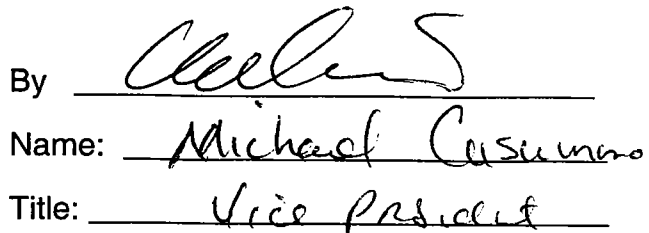 By
Name: Michael Cusumano
Title: Vice President